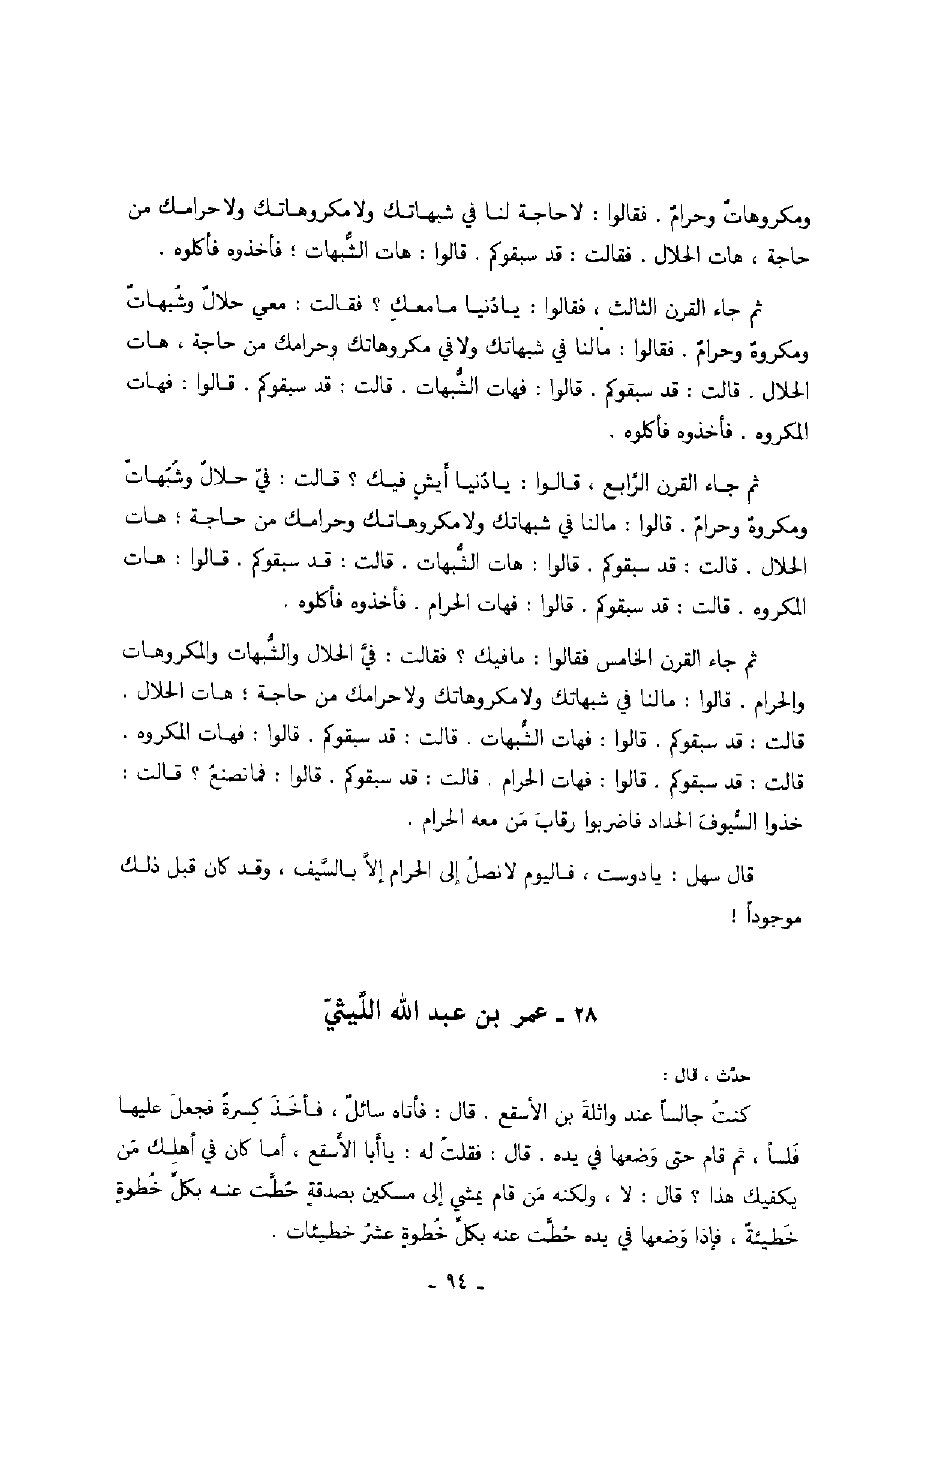 ومكروهاتٌ وحرامٌ . فقالوا : لاحاجة لنا في شبهاتك ولامكروهاتك ولاحرامك من
حاجة ، هات الحلال . فقالت : قد سبقوكم . قالوا : هات الشُّبهات ؛ فأخذوه فأكلوه .
ثم جاء القرن الثالث ، فقالوا : يادُنيا مامعكِ ؟ فقالت : معي حلالٌ وشُبهاتٌ
ومكروهٌ وحرامٌ . فقالوا : مالنا في شبهاتك ولافي مكروهاتك وحرامك من حاجة ، هات
الحلال . قالت : قد سبقوكم . قالوا : فهات الشُّبهات . قالت : قد سبقوكم . قالوا : فهات
المكروه . فأخذوه فأكلوه .
ثم جاء القرن الرَّابع ، قالوا : يادُنيا أيشٍ فيك ؟ قالت : فيّ حلالٌ وشُبُهاتٌ
ومكروهٌ وحرامٌ . قالوا : مالنا في شبهاتك ولامكروهاتك وحرامك من حاجة ؛ هات
الحلال . قالت : قد سبقوكم . قالوا : هات الشُّبهات . قالت : قد سبقوكم . قالوا : هات
المكروه . قالت : قد سبقوكم . قالوا : فهات الحرام . فأخذوه فأكلوه .
ثم جاء القرن الخامس فقالوا : مافيك ؟ فقالت : فيَّ الحلال والشُّبهات والمكروهات
والحرام . قالوا : مالنا في شبهاتك ولامكروهاتك ولاحرامك من حاجة ؛ هات الحلال .
قالت : قد سبقوكم . قالوا : فهات الشُّبهات . قالت : قد سبقوكم . قالوا : فهات المكروه .
قالت : قد سبقوكم . قالوا : فهات الحرام . قالت : قد سبقوكم . قالوا : فمانصنعُ ؟ قالت :
خذوا السُّيوفَ الحداد فاضربوا رقابَ مَن معه الحرام .
قال سهل : يادوست ، فاليوم لانصلُ إلى الحرام إلاَّ بالسَّيف ، وقد كان قبل ذلك
موجوداً !
٢٨ ـ عمر بن عبد الله اللَّيثيّ
حدّث ، قال :
كنتُ جالساً عند واثلةَ بن الأسقع . قال : فأتاه سائلٌ ، فأخَذَ كِسرةً فجعل عليها
فَلساً ، ثم قام حتى وَضعها في يده . قال : فقلتُ له : ياأبا الأسقع ، أما كان في أهلك مَن
يكفيك هذا ؟ قال : لا ، ولكنه مَن قام يمشي إلى مسكين بصدقةٍ حُطَّت عنه بكلِّ خُطوةٍ
خَطيئةٌ ، فإذا وَضعها في يده حُطَّت عنه بكلِّ خُطوةٍ عشرُ خطيئات .
ـ ٩٤ ـ